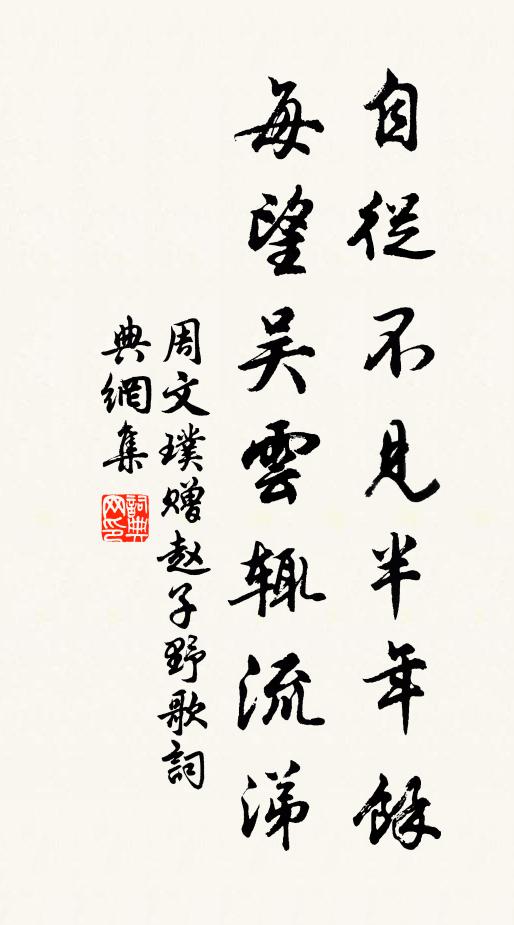 自從不見半年餘
每望吴雲辄流涕
周文璞赠赵子野歌詞
典網集
詞典网印